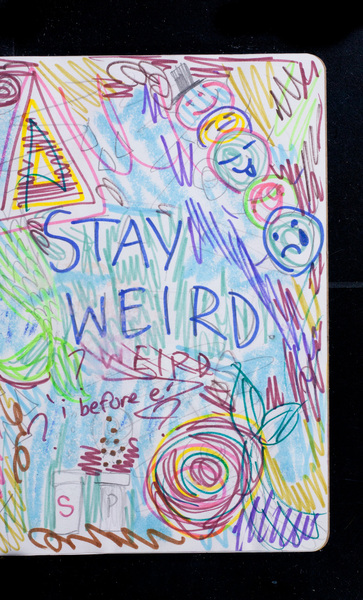 STAY
WEIRD
EIRD
"i before e"
S P